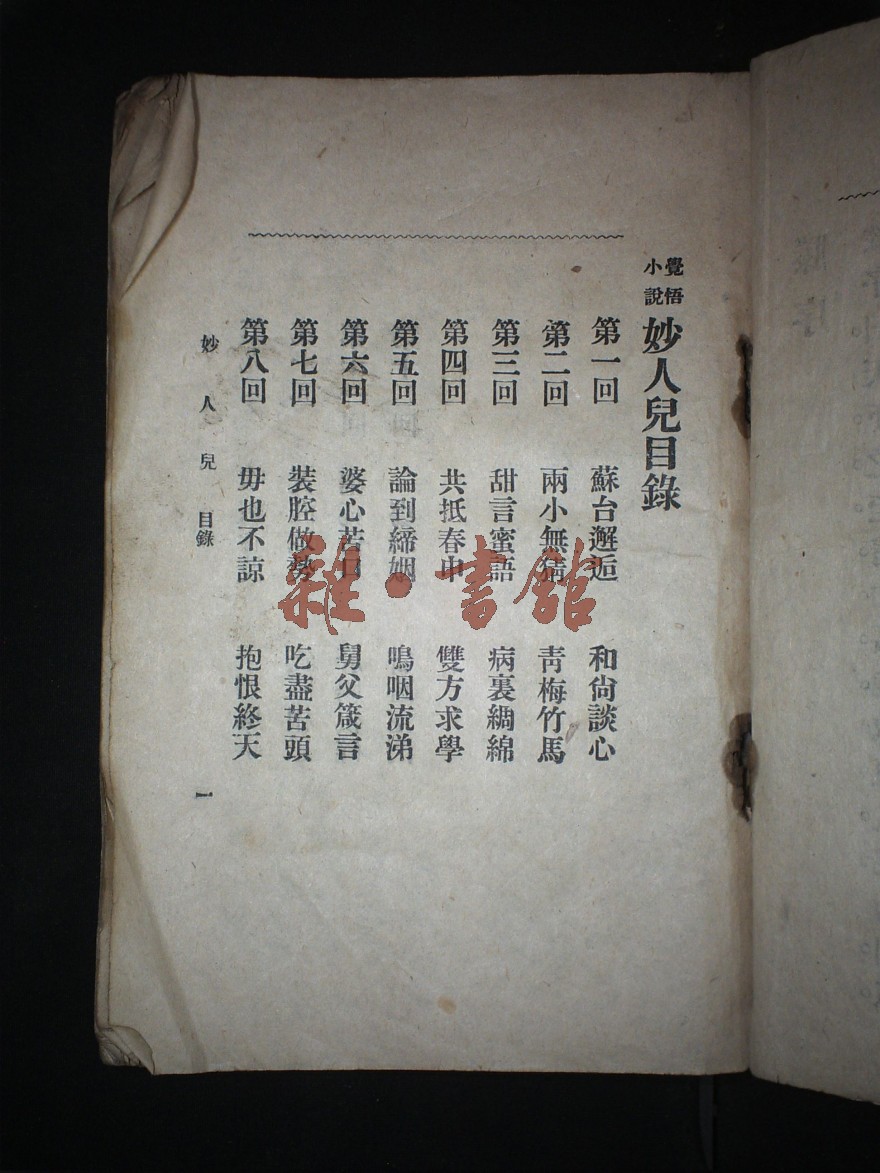 覺悟小說 妙人兒目錄
第一回 蘇台邂逅 和尙談心
第二回 兩小無猜 靑梅竹馬
第三回 甜言蜜語 病裏綢綿
第四回 共抵春申 雙方求學
第五回 論到締姻 鳴咽流涕
第六回 婆心苦口 舅父箴言
第七回 裝腔做勢 吃盡苦頭
第八回 毋也不諒 抱恨終天
妙人兒 目錄 一
雜·書館